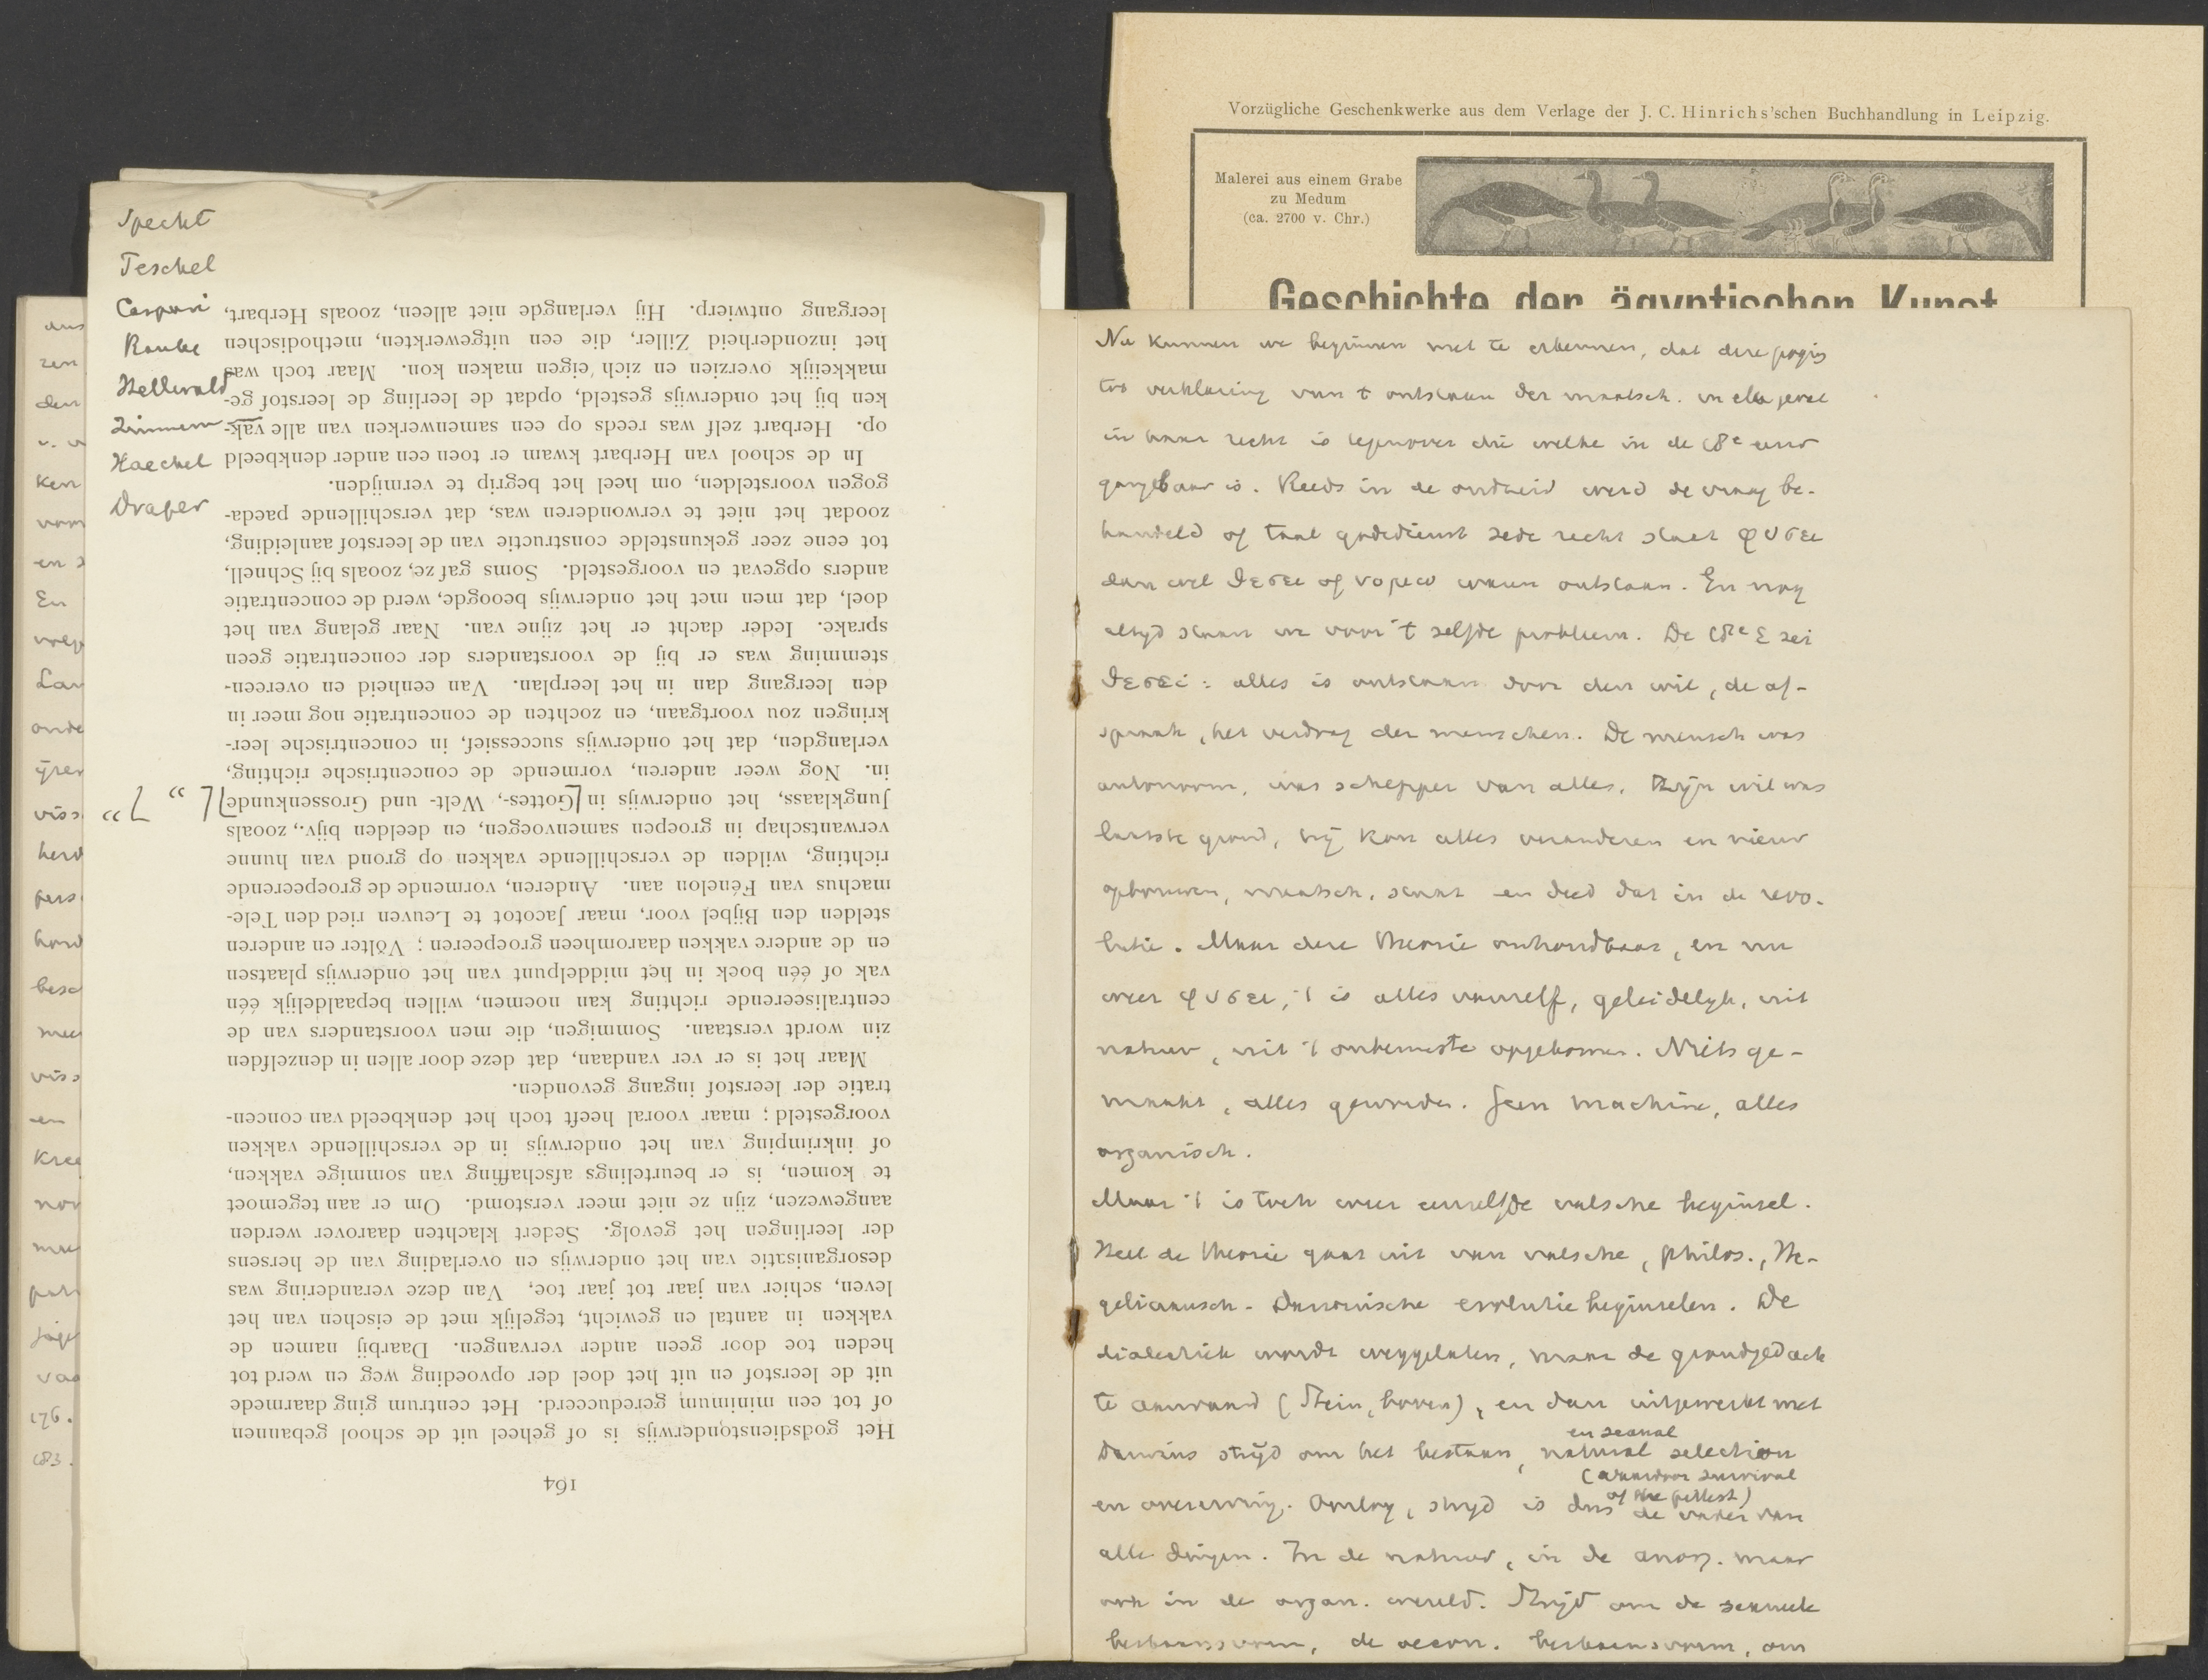 Vorzügliche Geschenkwerke aus dem Verlage der J. C. Hinrichs'schen Buchhandlung in Leipzig.
Malerei aus einem Grabe
zu Medum
(ca. 2700 v. Chr.)
Geschichte der ägyptischen Kunst
Specht
Teschel
Caspari
Hellwald
Haeckel
Draper
164
Het godsdienstonderwijs is of geheel uit de school gebannen
of tot een minimum gereduceerd. Het centrum ging daarmede
uit de leerstof en uit het doel der opvoeding weg en werd tot
heden toe door geen ander vervangen. Daarbij namen de
vakken in aantal en gewicht, tegelijk met de eischen van het
leven, schier van jaar tot jaar toe. Van deze verandering was
desorganisatie van het onderwijs en overlading van de hersens
der leerlingen het gevolg. Sedert klachten daarover werden
aangewezen, zijn ze niet meer verstomd. Om er aan tegemoet
te komen, is er beurtelings afschaffing van sommige vakken,
of inkrimping van het onderwijs in de verschillende vakken
voorgesteld; maar vooral heeft toch het denkbeeld van concen-
tratie der leerstof ingang gevonden.
Maar het is er ver vandaan, dat deze door allen in denzelfden
zin wordt verstaan. Sommigen, die men voorstanders van de
centraliseerende richting kan noemen, willen bepaaldelijk één
vak of één boek in het middelpunt van het onderwijs plaatsen
en de andere vakken daaromheen groepeeren; Völter en anderen
stelden den Bijbel voor, maar Jacotot te Leuven ried den Tele-
machus van Fénelon aan. Anderen, vormende de groepeerende
richting, wilden de verschillende vakken op grond van hunne
verwantschap in groepen samenvoegen, en deelden bijv., zooals
Jungklaass, het onderwijs in Gottes-, Welt- und Grossenkunde
in. Nog weer anderen, vormende de concentrische richting,
verlangden, dat het onderwijs successief, in concentrische leer-
kringen zou voortgaan, en zochten de concentratie nog meer in
den leergang dan in het leerplan. Van eenheid en overeen-
stemming was er bij de voorstanders der concentratie geen
sprake. Ieder dacht er het zijne van. Naar gelang van het
doel, dat men met het onderwijs beoogde, werd de concentratie
anders opgevat en voorgesteld. Soms gaf ze, zooals bij Schnell,
tot eene zeer gekunstelde constructie van de leerstof aanleiding,
zoodat het niet te verwonderen was, dat verschillende paeda-
gogen voorstelden, om heel het begrip te vermijden.
In de school van Herbart kwam er toen een ander denkbeeld
op. Herbart zelf was reeds op een samenwerken van alle vak-
ken bij het onderwijs gesteld, opdat de leerling de leerstof ge-
makkelijk overzien en zich eigen maken kon. Maar toch was
het inzonderheid Ziller, die een uitgewerkten, methodischen
leergang ontwierp. Hij verlangde niet alleen, zooals Herbart,
Nu kunnen we beginnen met te erkennen, dat deze poging
tot verklaring van 't ontstaan der maatsch. in elk geval
in haar recht is tegenover die welke in de 18e eeuw
gangbaar is. Reeds in de oudheid werd de vraag be-
handeld of taal godsdienst zede recht staat φυσει
dan wel θεσει of νομω waren ontstaan. En nog
altyd staan we voor 't zelfde probleem. De 18e E zei
θεσει: alles is ontstaan door den wil, de af-
spraak, het verdrag der menschen. De mensch was
autonoom, was schepper van alles. Zijn wil was
laatste grond, hij kon alles veranderen en nieuw
opbouwen, maatsch. staat en deed dat in de revo-
lutie. Maar deze theorie onhoudbaar, en nu
weer φυσει, 't is alles vanzelf, geleidelyk, uit
natuur, uit 't onbewuste opgekomen. Niets ge-
maakt, alles geworden. Geen machine, alles
organisch.
Maar 't is toch weer eenzelfde valsche beginsel.
Heel de theorie gaat uit van valsche, philos., He-
geliaansch-Darwinische evolutie beginselen. De
dialectiek wordt weggelaten, maar de grondgedach
te aanvaard (Stein, boven), en dan uitgewerkt met
Darwins strijd om het bestaan, natural en sexual selection
(waardoor survival of the fittest)
en overerving. Oorlog, strijd is dus de vader van
alle dingen. In de natuur, in de anorg. maar
ook in de organ. wereld. Strijd om de sexueele
bestaansvorm, de oecon. bestaansvorm, om